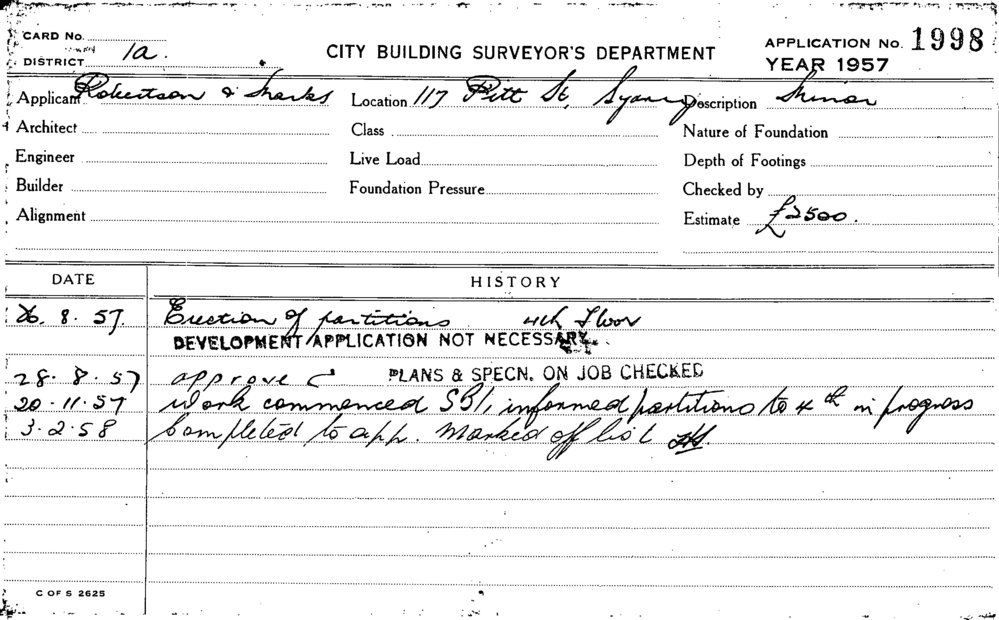 CARD No.
DISTRICT 1a.
CITY BUILDING SURVEYOR'S DEPARTMENT
APPLICATION No. 1998
YEAR 1957
Applicant Robertson & Marks Location 117 Pitt St, Sydney Description Minor
Architect Class Nature of Foundation
Engineer Live Load Depth of Footings
Builder Foundation Pressure Checked by
Alignment Estimate £2500.
DATE HISTORY
26. 8. 57. Erection of partitions 4th Floor
DEVELOPMENT APPLICATION NOT NECESSARY.
28. 8. 57 approved PLANS & SPECN. ON JOB CHECKED
20. 11. 57 Work commenced SBI, informed partitions to 4th in progress
3. 2. 58 Completed to app. Marked off list
C OF S 2625